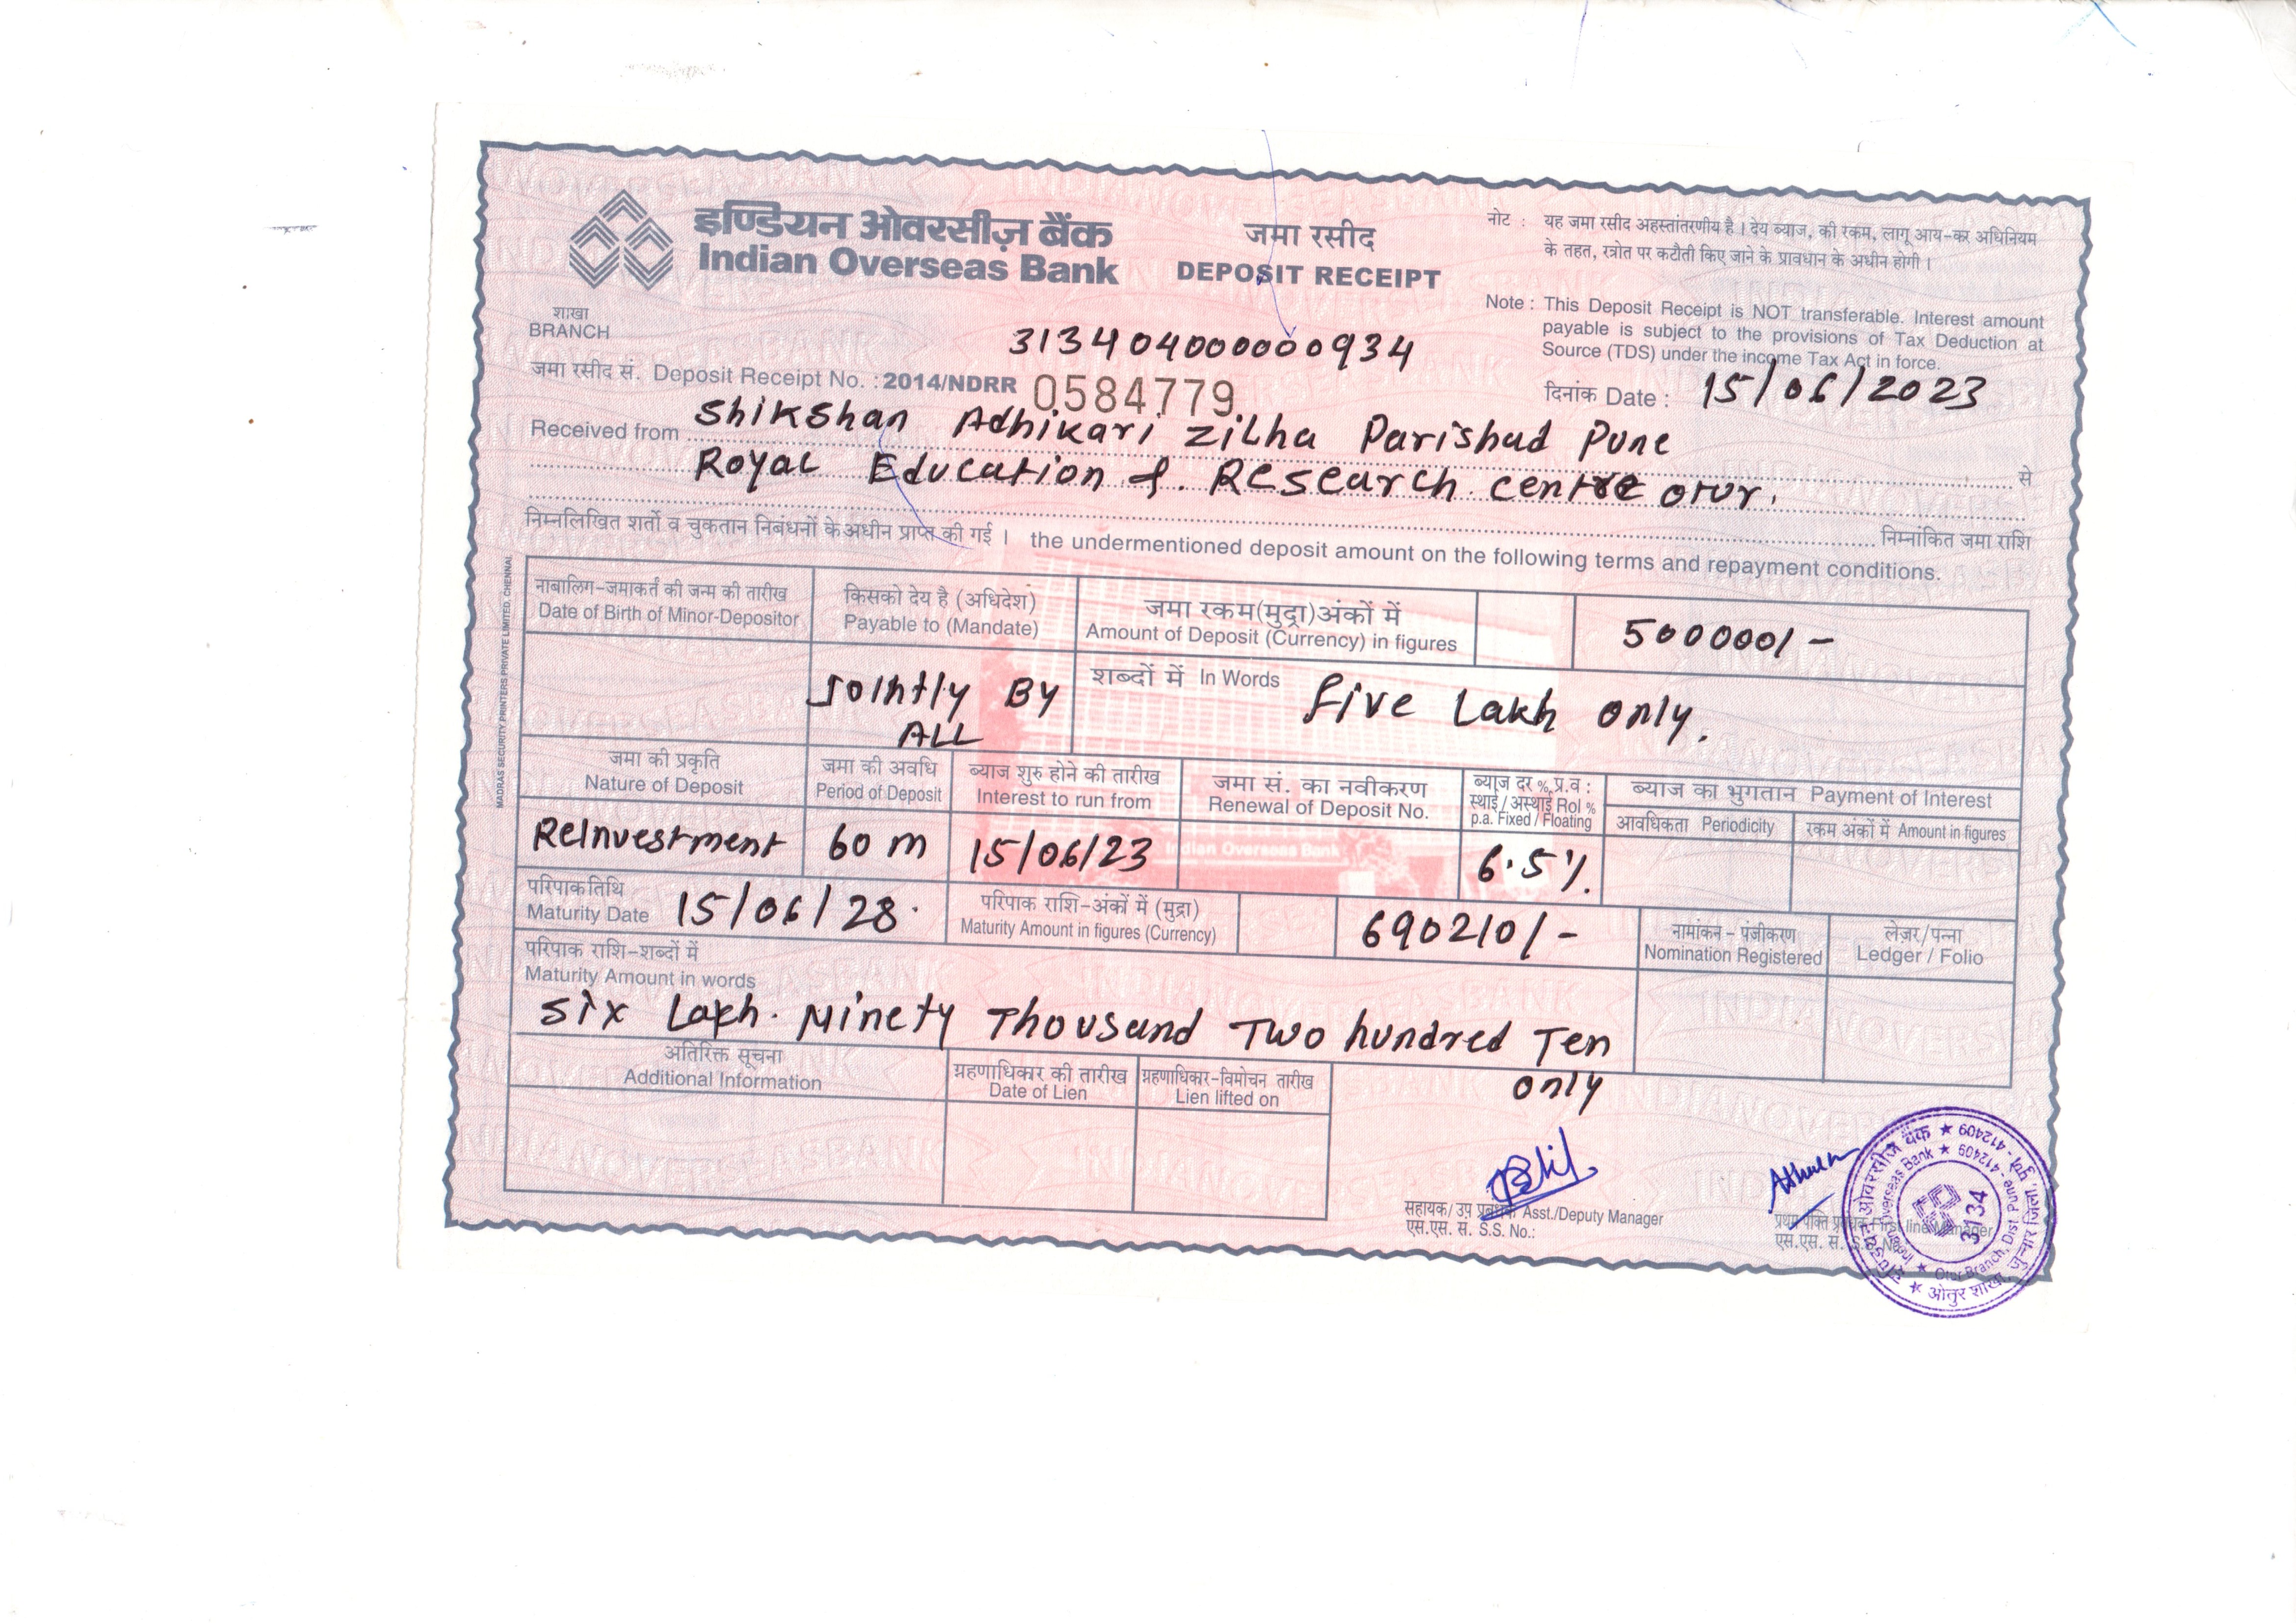 इण्डियन ओवरसीज़ बैंक
Indian Overseas Bank
जमा रसीद
DEPOSIT RECEIPT
नोट : यह जमा रसीद अहस्तांतरणीय है । देय ब्याज, की रकम, लागू आय-कर अधिनियम
के तहत, स्त्रोत पर कटौती किए जाने के प्रावधान के अधीन होगी ।
Note : This Deposit Receipt is NOT transferable. Interest amount
payable is subject to the provisions of Tax Deduction at
Source (TDS) under the income Tax Act in force.
शाखा
BRANCH
313404000000934
जमा रसीद सं. Deposit Receipt No. : 2014/NDRR 0584779
दिनांक Date : 15/06/2023
Received from Shikshan Adhikari Zilha Parishad Pune
Royal Education &. Research centre otur. से
निम्नलिखित शर्तो व चुकतान निबंधनों के अधीन प्राप्त की गई । निम्नांकित जमा राशि
the undermentioned deposit amount on the following terms and repayment conditions.
नाबालिग-जमाकर्त की जन्म की तारीख
Date of Birth of Minor-Depositor
किसको देय है (अधिदेश)
Payable to (Mandate)
जमा रकम(मुद्रा)अंकों में
Amount of Deposit (Currency) in figures
500000/-
Jointly By
ALL
शब्दों में In Words five Lakh only.
जमा की प्रकृति
Nature of Deposit
जमा की अवधि
Period of Deposit
ब्याज शुरु होने की तारीख
Interest to run from
जमा सं. का नवीकरण
Renewal of Deposit No.
ब्याज दर %.प्र.व :
स्थाई / अस्थाई RoI %
p.a. Fixed / Floating
ब्याज का भुगतान Payment of Interest
आवधिकता Periodicity
रकम अंकों में Amount in figures
ReInvestment
60 m
15/06/23
6.5%.
Indian Overseas Bank
परिपाक तिथि
Maturity Date 15/06/28.
परिपाक राशि-अंकों में (मुद्रा)
Maturity Amount in figures (Currency)
690210/-
नामांकन - पंजीकरण
Nomination Registered
लेज़र/पन्ना
Ledger / Folio
परिपाक राशि-शब्दों में
Maturity Amount in words
Six Lakh. Ninety Thousand Two hundred Ten
only
अतिरिक्त सूचना
Additional Information
ग्रहणाधिकार की तारीख
Date of Lien
ग्रहणाधिकार-विमोचन तारीख
Lien lifted on
सहायक/ उप प्रबंधक Asst./Deputy Manager
एस.एस. सं. S.S. No.:
प्रथम पंक्ति प्रबंधक First line Manager
एस.एस. सं. S.S. No
इण्डियन ओवरसीज बैंक ★ 412409
ओतुर शाखा, जुन्नार जिला, पुणे - 412409
Indian Overseas Bank ★
Otur Branch, Dist Pune - 412409
3134
MADRAS SECURITY PRINTERS PRIVATE LIMITED, CHENNAI